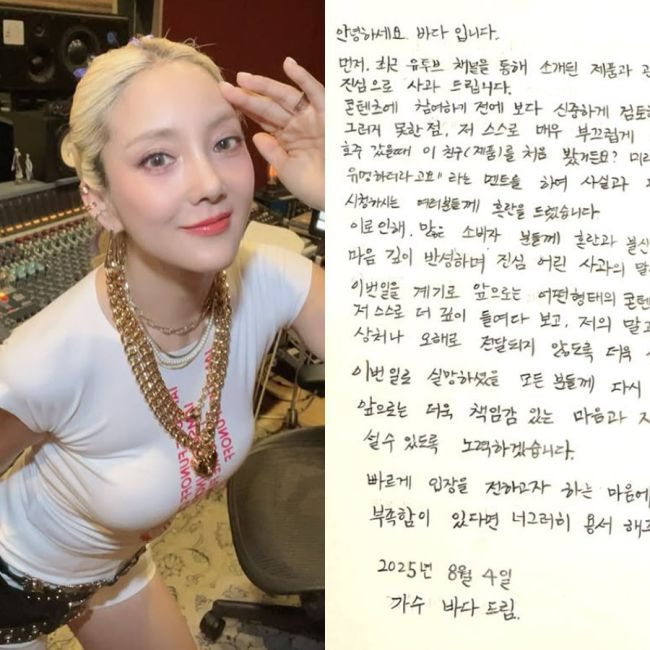 안녕하세요 바다 입니다.
먼저, 최근 유투브 채널을 통해 소개된 제품과 관
진심으로 사과 드립니다.
콘텐츠에 참여하기 전에 보다 신중하게 검토하
그러지 못한점, 저 스스로 매우 부끄럽게
호주 갔을때 이 친구(제품)를 처음 봤거든요? 미라
유명하더라고요" 라는 멘트를 하여 사실과
시청하시는 여러분들께 혼란을 드렸습니다
이로 인해, 많은 소비자 분들께 혼란과 불신
마음 깊이 반성하며 진심 어린 사과의 말
이번일을 계기로 앞으로는 어떤형태의 콘텐
저 스스로 더 깊이 들여다 보고, 저의 말과
상처나 오해로 전달되지 않도록 더욱
이번일로 실망하셨을 모든 분들께 다시
앞으로는 더욱 책임감 있는 마음과
설수 있도록 노력하겠습니다.
빠르게 입장을 전하고자 하는 마음에
부족함이 있다면 너그러히 용서 해
2025년 8월 4일
가수 바다 드림.